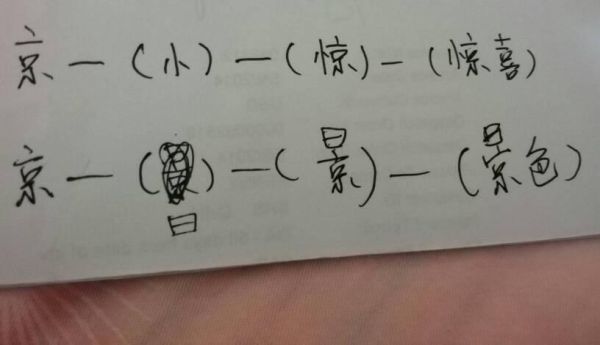 京—(小)—(惊)—(惊喜)
京—(日)—(景)—(景色)